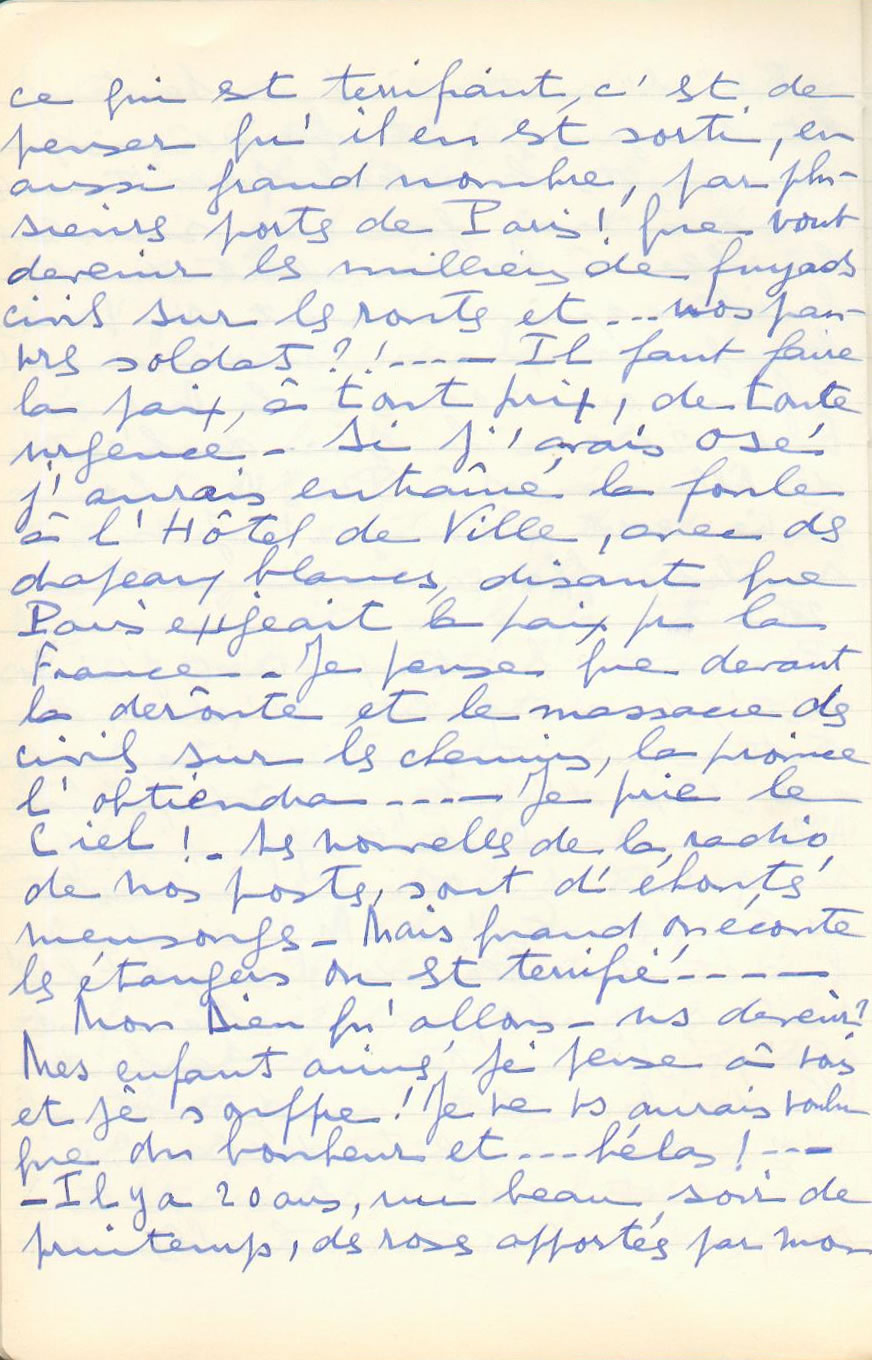 ce qui est terrifiant, c'est de
penser qu'il en est sorti, en
aussi grand nombre, par plu-
sieurs ports de Paris! que vont
devenir les milliers de fuyads
civils sur les routes et ... nos pau-
vres soldats ?!---- Il faut faire
la paix, à tout prix, de toute
urgence - Si j'avais osé
j'aurais entraîné la foule
à l'Hôtel de Ville, avec des
drapeaux blancs, disant que
Paris exigeait la paix pr la
France - Je pense que devant
la déroute et le massacre des
civils sur les chemins, la province
l'obtiendra ---- Je prie le
Ciel! - Les nouvelles de la radio,
de nos postes, sont d'éhontés
mensonges - Mais quand on écoute
les étrangers on est terrifié -----
Mon Dieu qu'allons-ns devenir?
Mes enfants aimés, je pense à vous
et je souffre! Je ne vs aurais voulu
que du bonheur et ... hélas! ---
- Il y a 20 ans, un beau soir de
printemps, des roses apportés par mon